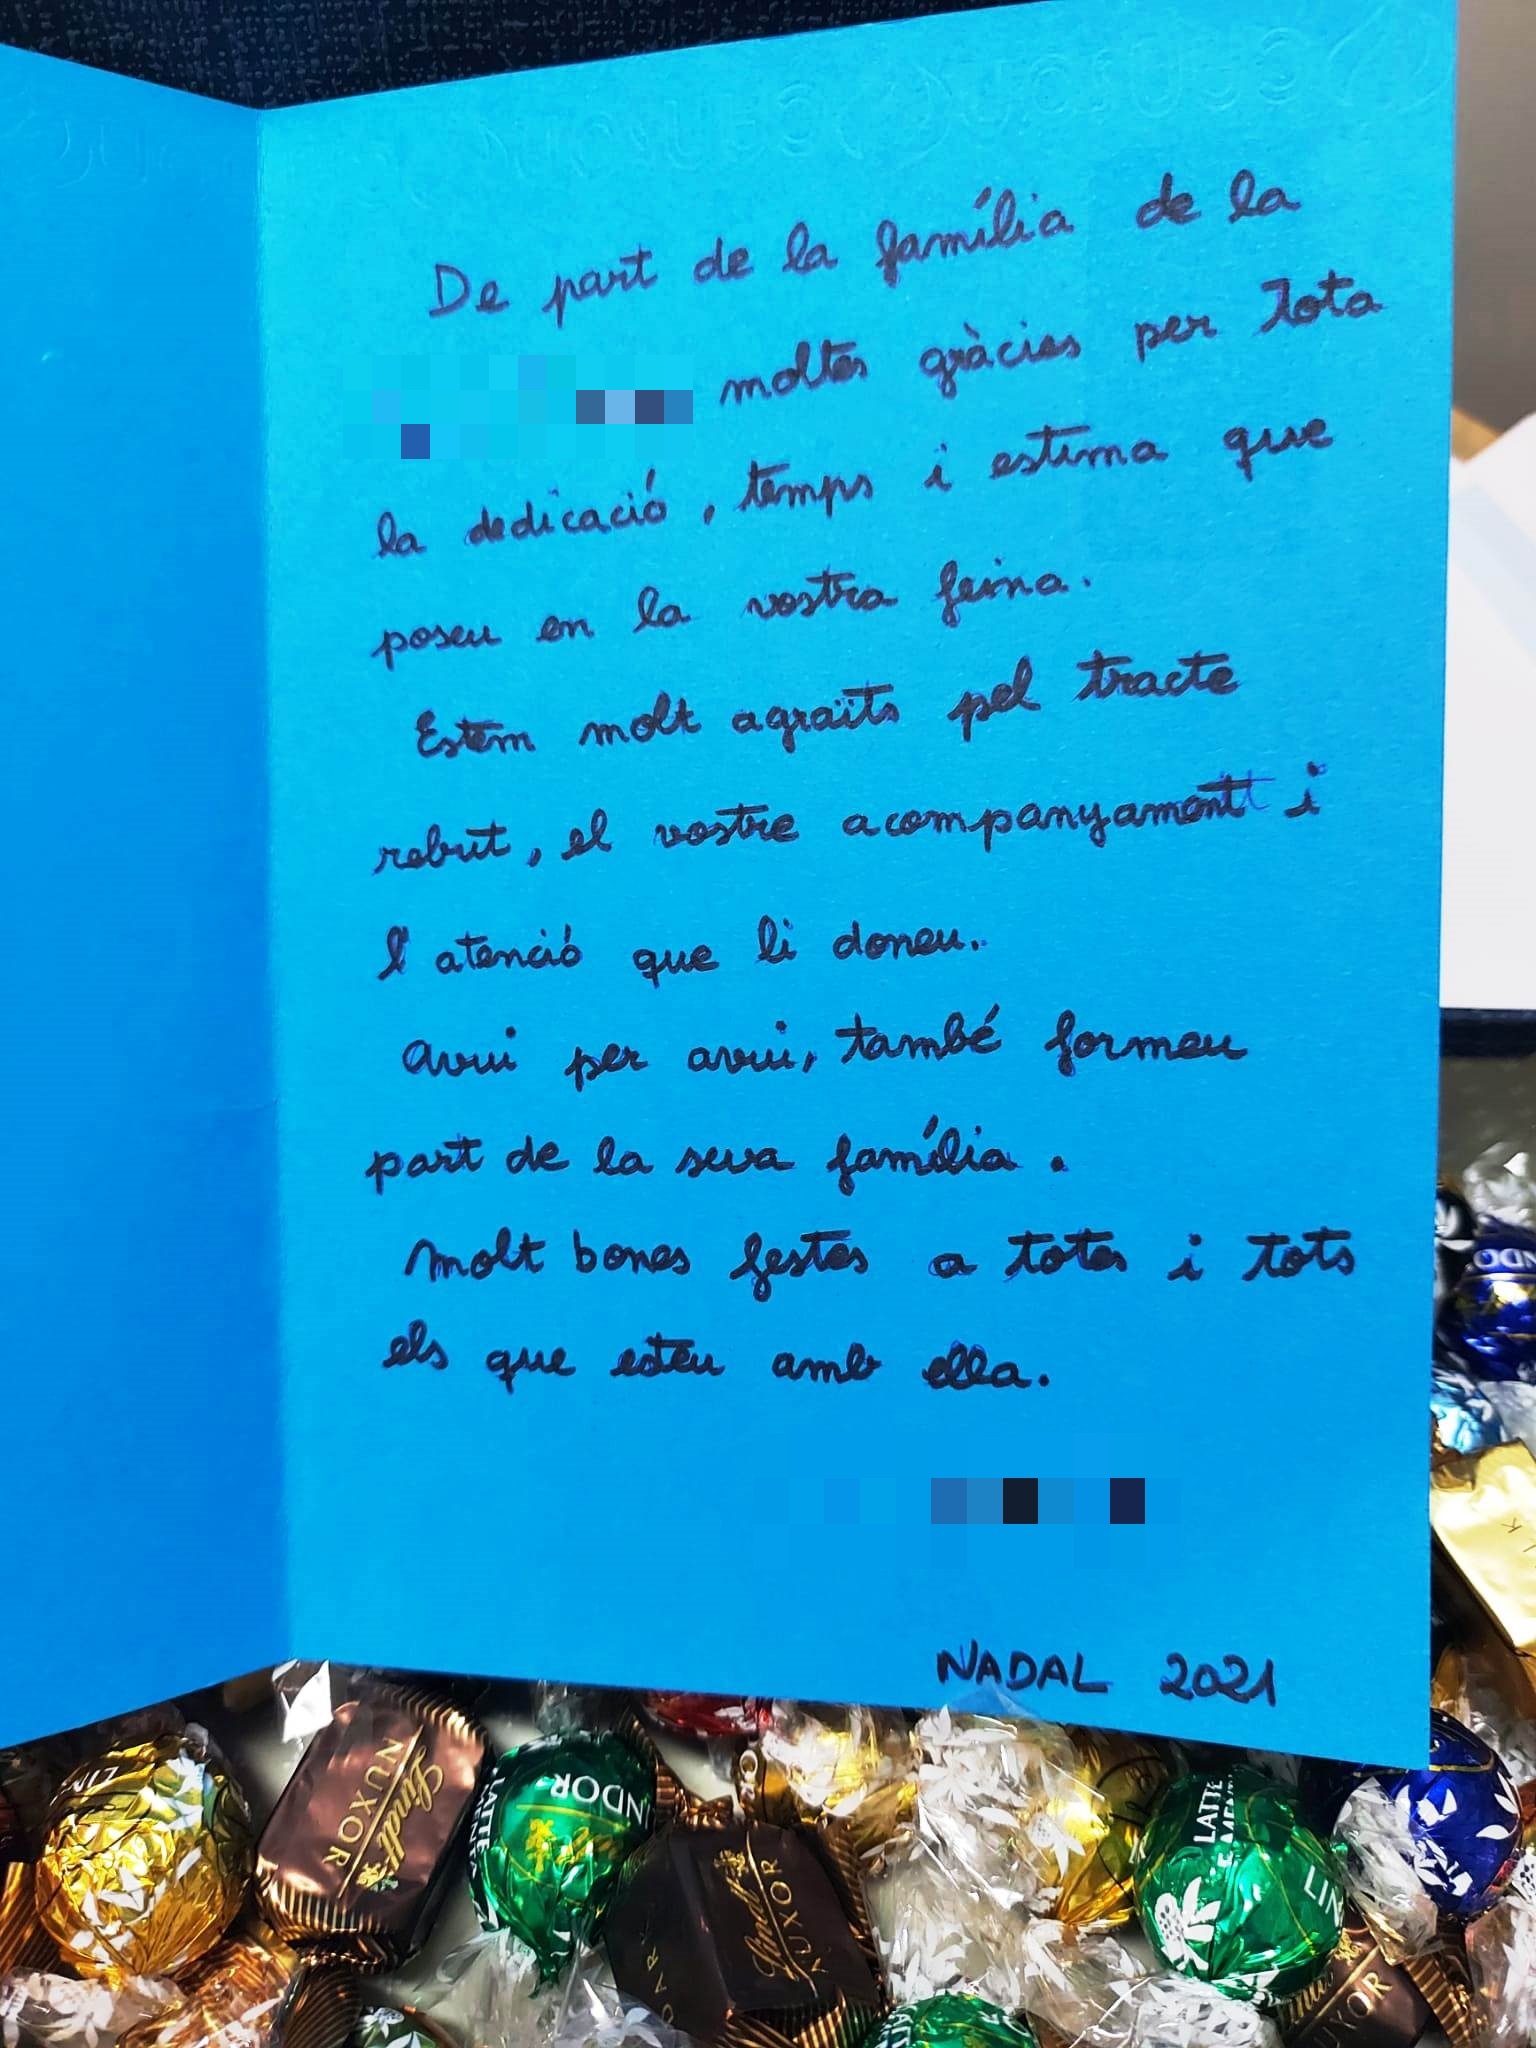 De part de la família de la
moltes gràcies per tota
la dedicació, temps i estima que
poseu en la vostra feina.
Estem molt agraïts pel tracte
rebut, el vostre acompanyament i
l'atenció que li doneu.
Avui per avui, també formeu
part de la seva família.
Molt bones festes a totes i tots
els que esteu amb ella.
NADAL 2021
Lindt
NUXOR
LATTE
NDOR
Lindt
NUXOR
LATTE
LIN
UXOR